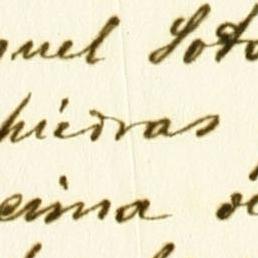 quel Soto
hiedras
ecima d